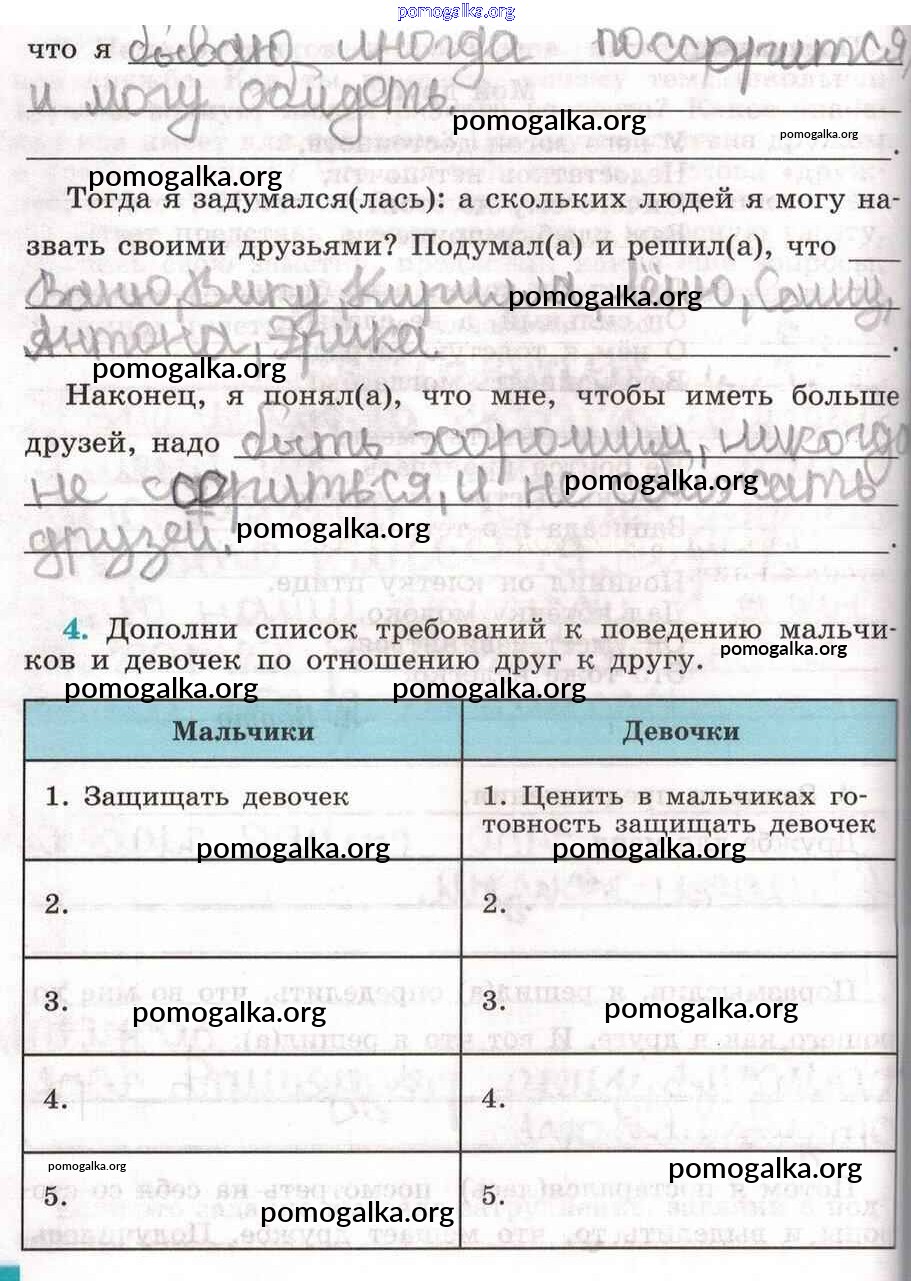 pomogalka.org
что я бываю иногда поссорится,
и могу обидеть.
pomogalka.org
pomogalka.org
pomogalka.org
Тогда я задумался(лась): а скольких людей я могу на-
звать своими друзьями? Подумал(а) и решил(а), что
Ваню, Вику, Кирилла, Сашу,
pomogalka.org
Антона, Эрика.
pomogalka.org
Наконец, я понял(а), что мне, чтобы иметь больше
друзей, надо быть хорошим, никогда
не ссориться, и не обижать
pomogalka.org
друзей.
pomogalka.org
4. Дополни список требований к поведению мальчи-
ков и девочек по отношению друг к другу.
pomogalka.org
pomogalka.org pomogalka.org
Мальчики Девочки
1. Защищать девочек 1. Ценить в мальчиках го-
товность защищать девочек
pomogalka.org pomogalka.org
2. 2.
3. 3.
pomogalka.org pomogalka.org
4. 4.
pomogalka.org pomogalka.org
5. 5.
pomogalka.org